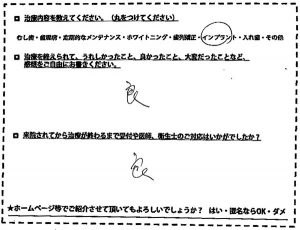 ◘ 治療内容を教えてください。（丸をつけてください）
むし歯・歯周病・定期的なメンテナンス・ホワイトニング・歯列矯正・インプラント・入れ歯・その他
◘ 治療を終えられて、うれしかったこと、良かったこと、大変だったことなど、
感想をご自由にお書きください。
良
◘ 来院されてから治療が終わるまで受付や医師、衛生士のご対応はいかがでしたか？
良
★ホームページ等でご紹介させて頂いてもよろしいでしょうか？ はい・匿名ならOK・ダメ